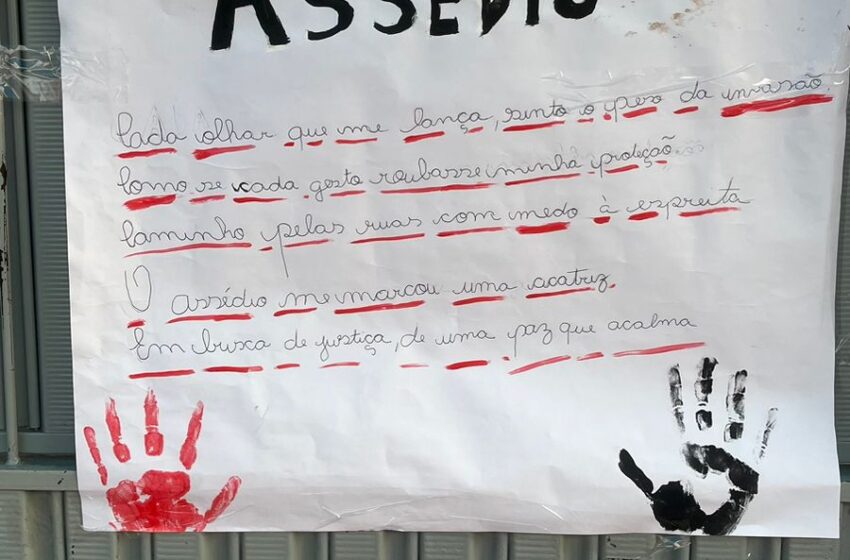 ASSÉDIO
Cada olhar que me lança, sinto o peso da invasão.
Como se cada gesto roubasse minha proteção
Caminho pelas ruas com medo à espreita
O assédio me marcou uma acatriz.
Em busca de justiça, de uma paz que acalma